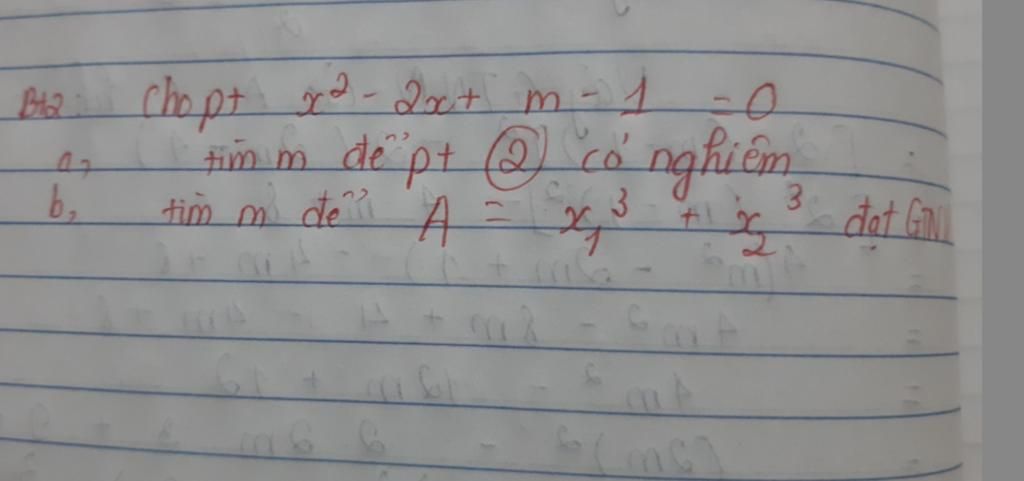 Bt2: Cho pt x² - 2x + m - 1 = 0
a, tìm m để pt ② có nghiêm
b, tìm m để A = x₁³ + x₂³ đạt GTN